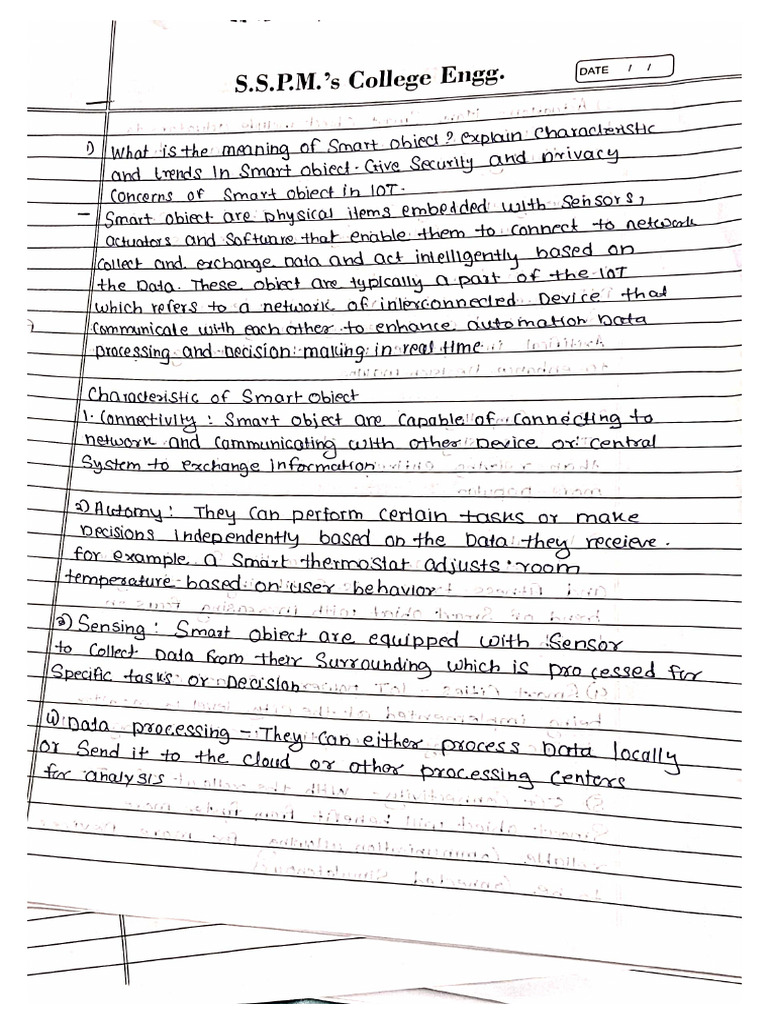 S.S.P.M.'s College Engg.
DATE / /
1) What is the meaning of Smart object? explain Characteristic
and trends In Smart object. Give Security and privacy
Concerns of Smart object in IOT.
- Smart object are physical items embedded with Sensors,
actuators and Software that enable them to connect to network
Collect and exchange Data and act intelligently based on
the Data. These object are typically a part of the IOT
which refers to a network of interconnected Device that
Communicate with each other to enhance automation Data
processing and Decision making in real time
Characteristic of Smart Object
1. Connectivity : Smart object are Capable of Connecting to
network and Communicating with other Device or Central
System to exchange information
2) Automy : They Can perform Certain tasks or make
Decisions Independently based on the Data they receieve.
for example a Smart thermostat adjusts room
temperature based on user behavior
3) Sensing : Smart object are equipped with Sensor
to Collect Data from their Surrounding which is processed for
Specific tasks or Decision
4) Data processing - They Can either process Data locally
or Send it to the Cloud or other processing Centers
for analysis